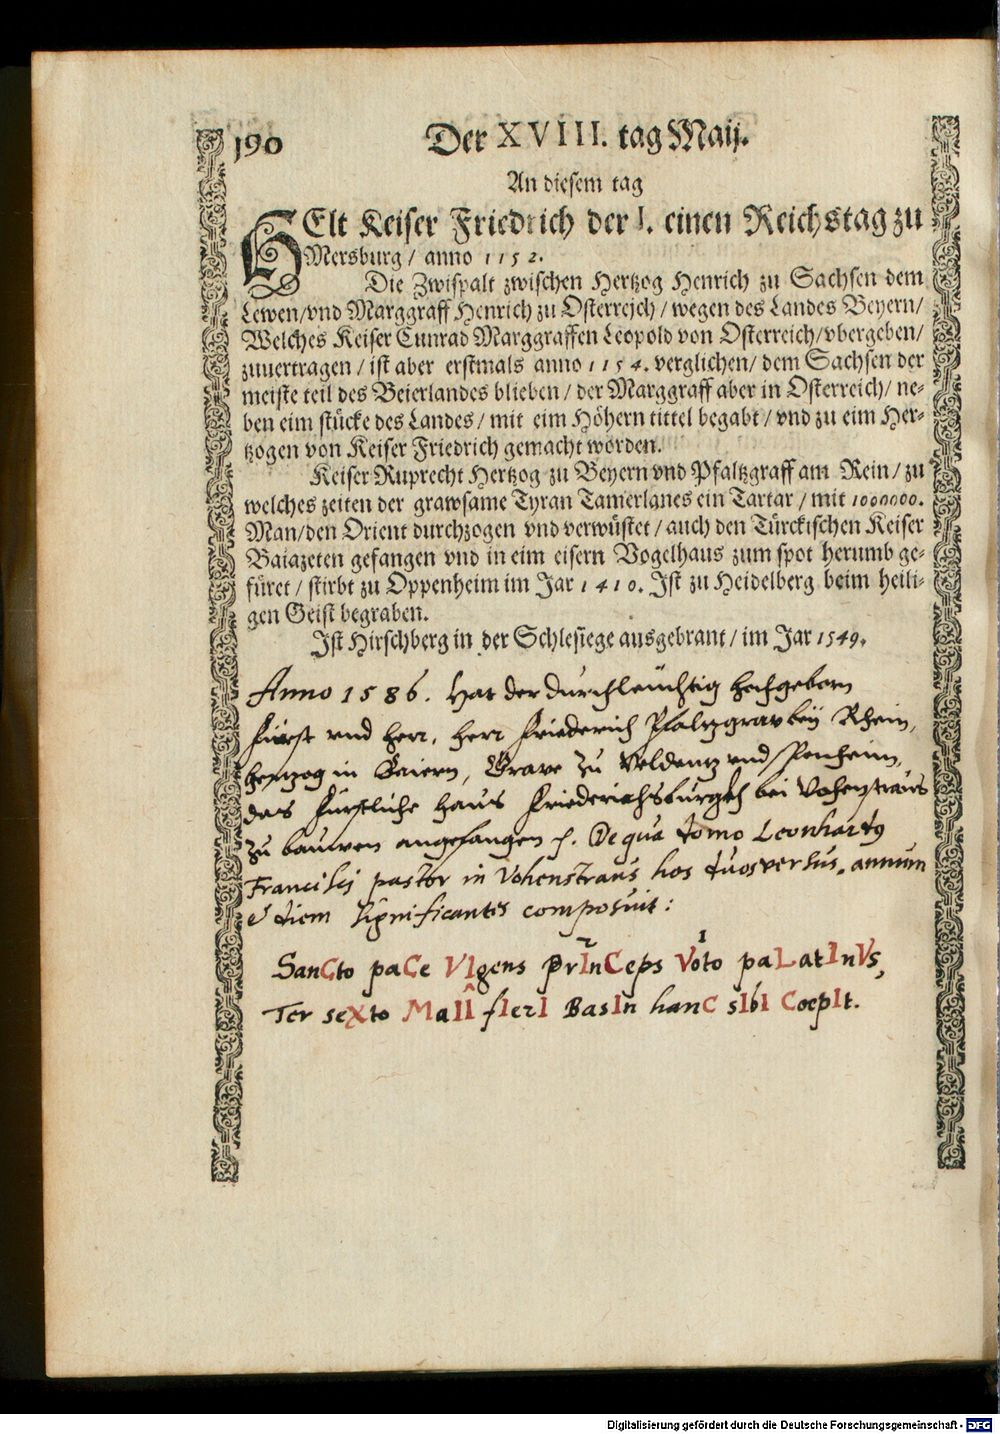 190
Der XVIII. tag Maij.
An diesem tag
HElt Keiser Friedrich der I. einen Reichstag zu
Mersburg / anno 1152.
Die Zwispalt zwischen Hertzog Henrich zu Sachsen dem
Lewen/vnd Marggraff Henrich zu Osterreich / wegen des Landes Beyern/
Welches Keiser Cunrad Marggraffen Leopold von Osterreich/vbergeben/
zuuertragen / ist aber erstmals anno 1154. verglichen/ dem Sachsen der
meiste teil des Beierlandes blieben / der Marggraff aber in Osterreich/ ne-
ben eim stücke des Landes / mit eim Höhern tittel begabt / vnd zu eim Her-
tzogen von Keiser Friedrich gemacht worden.
Keiser Ruprecht Hertzog zu Beyern vnd Pfaltzgraff am Rein / zu
welches zeiten der grawsame Tyran Tamerlanes ein Tartar / mit 1000000.
Man/den Orient durchzogen vnd verwüstet / auch den Türckischen Keiser
Baiazeten gefangen vnd in eim eisern Vogelhaus zum spot herumb ge-
füret / stirbt zu Oppenheim im Jar 1410. Ist zu Heidelberg beim heili-
gen Geist begraben.
Ist Hirschberg in der Schlesiege ausgebrant / im Jar 1549.
Anno 1586. Hat der durchleuchtig hochgeborn
Fürst vnd herr, herr Friederich Pfaltzgrav beÿ Rhein,
hertzog in Baiern, Grave zu Veldentz vnd Sponheim,
das fürstliche haus Friederichsburgkh bei Vohenstraus
zu bauwen angefangen. De qua domo Leonhartus
Francisci pastor in Vohenstraus hos duos versus. annum
& diem significantes composuit:
2 1
SanCto paCe VIgens PrInCeps Voto paLatInVs,
Ter seXto MaII fIerI BasIn hanC sIbI CoepIt.
Digitalisierung gefördert durch die Deutsche Forschungsgemeinschaft - DFG